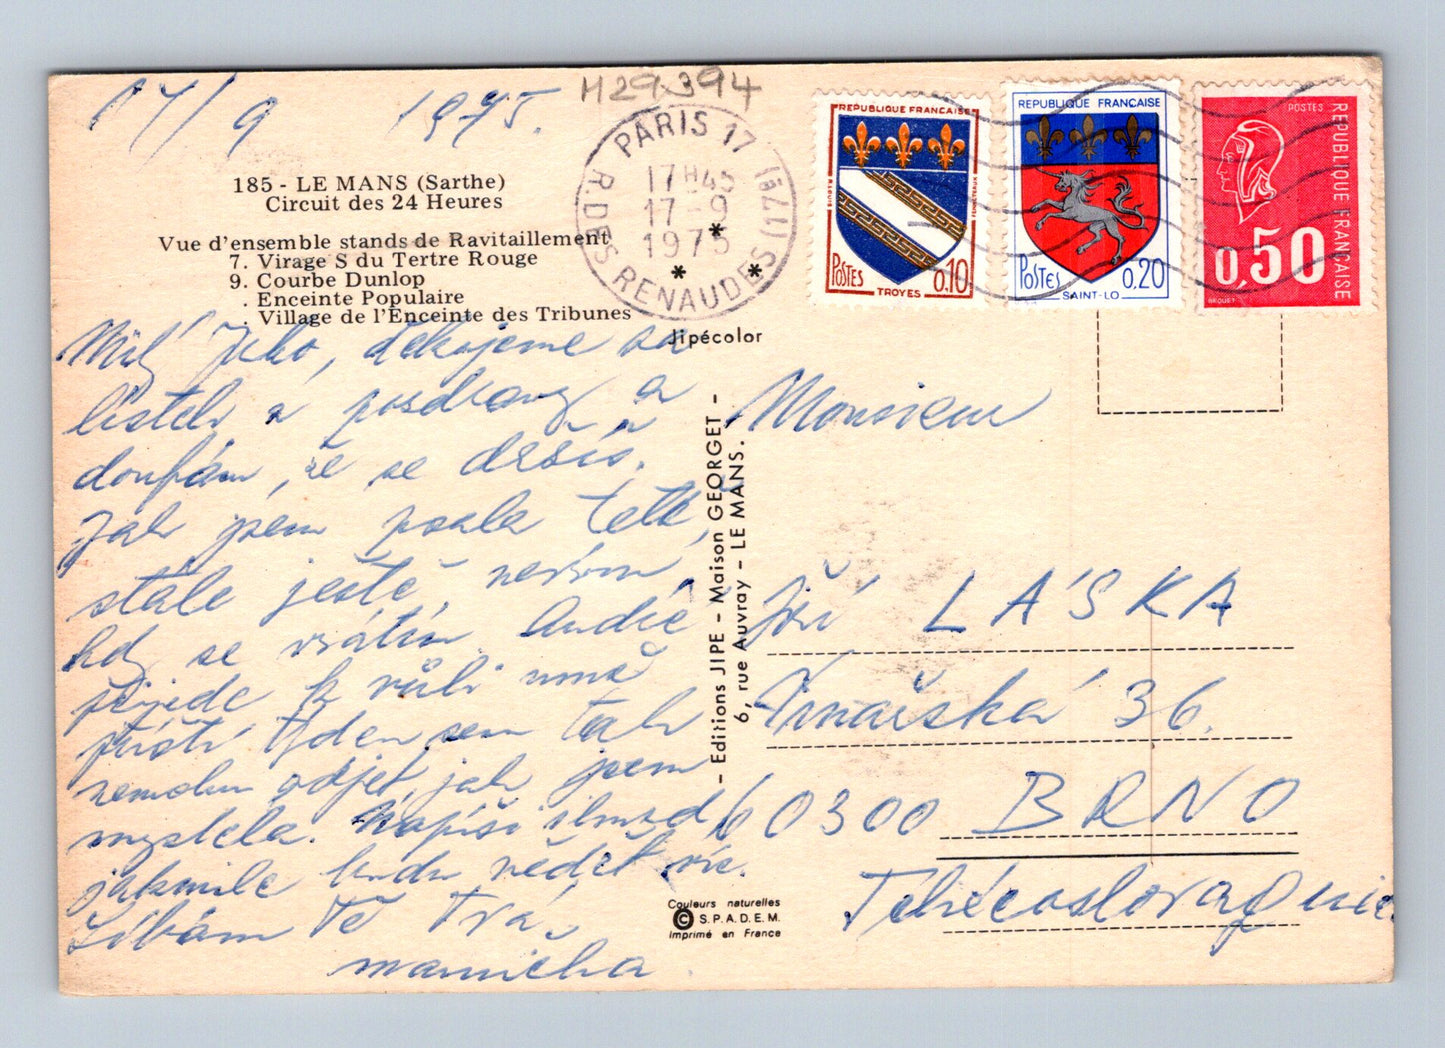 17/9 1975.
H29394
185 - LE MANS (Sarthe)
Circuit des 24 Heures
Vue d'ensemble stands de Ravitaillement
7. Virage S du Tertre Rouge
9. Courbe Dunlop
. Enceinte Populaire
. Village de l'Enceinte des Tribunes
Jipécolor
PARIS 17
R. DES RENAUDES (17E)
17H45
17-9
1975
REPUBLIQUE FRANCAISE
POSTES
0.10
TROYES
REPUBLIQUE FRANÇAISE
POSTES
0,20
SAINT-LO
POSTES
REPUBLIQUE FRANÇAISE
0,50
BEQUET
Milý Juko, děkujeme za
lístek a pozdravy a
doufám, že se držíš.
Jak jsem psala tetě,
stále ještě nevím,
kdy se vrátím. André
přijede k vůli mně
příští týden sem tak
nemohu odjet, jak jsem
myslela. Napíši ihned
jakmile budu vědět víc.
Líbám Tě Tvá
mamička
- Editions JIPE - Maison GEORGET -
6, rue Auvray - LE MANS.
Couleurs naturelles
© S.P.A.D.E.M.
Imprimé en France
Monsieur
Jiří LÁSKA
36.
60300 BRNO
Tchécoslovaquie